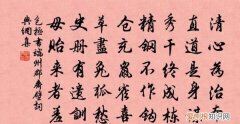 清心為治本
直道是身謀
秀幹終成棟
精鋼不作鉤
倉充鼠雀喜
草盡兔狐愁
史冊有遺訓
毋貽來者羞
包拯書端州郡齋壁詞